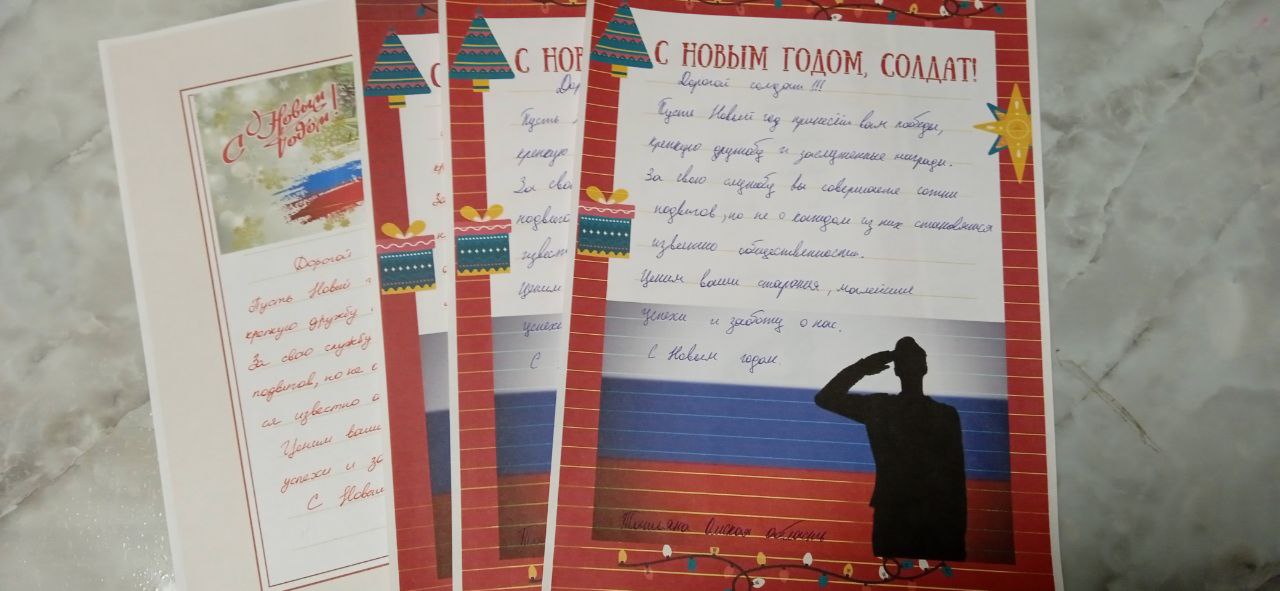 С Новым
годом!
Дорогой
Пусть Новый г
крепкую дружбу
За свою службу
подвигов, но не о
ся известно о
Ценим ваши
успехи и за
С Новым
С
С НОВ
Дор
Пусть
крепкую
За сво
подвиго
извест
Ценим
успехи
С
С НОВЫМ ГОДОМ, СОЛДАТ!
Дорогой солдат!!!
Пусть Новый год принесёт вам победы,
крепкую дружбу и заслуженные награды.
За свою службу вы совершаете сотни
подвигов, но не о каждом из них становится
известно общественности.
Ценим ваши старания, малейшие
успехи и заботу о нас.
С Новым годом.
Татьяна Омская область